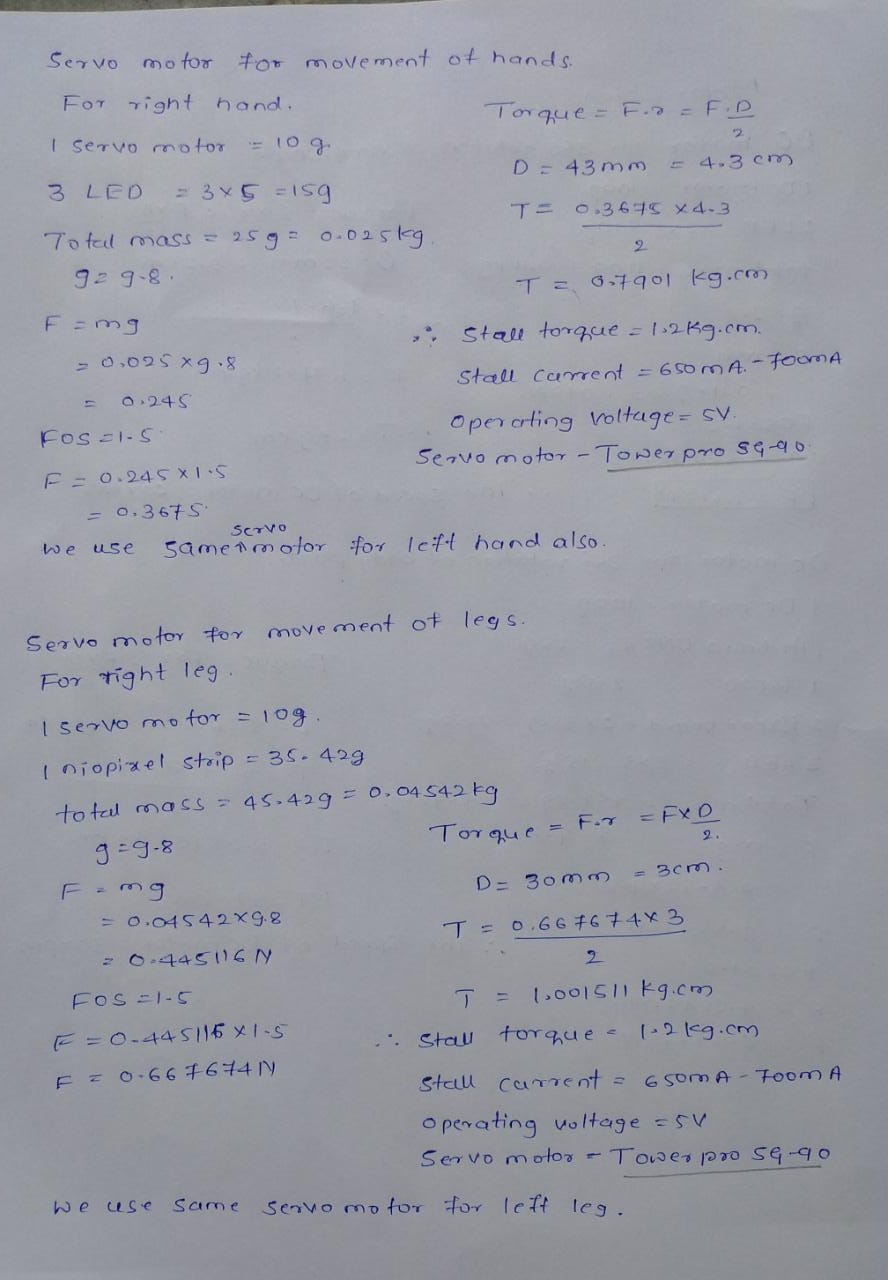 Servo motor for movement of hands.
For right hand.
1 servo motor = 10 g.
3 LED = 3×5 = 15g
Total mass = 25g = 0.025kg.
g = 9.8.
F = mg
= 0.025 × 9.8
= 0.245
FOS = 1.5
F = 0.245 × 1.5
= 0.3675
Torque = F.r = F.D/2
D = 43mm = 4.3 cm
T = 0.3675 × 4.3 / 2
T = 0.7901 kg.cm
∴ Stall torque = 1.2Kg.cm.
Stall current = 650mA. - 700mA
Operating voltage = 5V.
Servo motor - Tower pro SG-90
We use same servo motor for left hand also.
Servo motor for movement of legs.
For right leg.
1 servo motor = 10g.
1 niopixel strip = 35.42g
total mass = 45.42g = 0.04542kg
g = 9.8
F = mg
= 0.04542×9.8
= 0.445116 N
FOS = 1.5
F = 0.445116 × 1.5
F = 0.667674 N
Torque = F.r = F×D/2.
D = 30mm = 3cm.
T = 0.667674 × 3 / 2
T = 1.001511 kg.cm
∴ Stall torque = 1.2kg.cm
Stall current = 650mA - 700mA
Operating voltage = 5V
Servo motor - Tower pro SG-90
We use same servo motor for left leg.